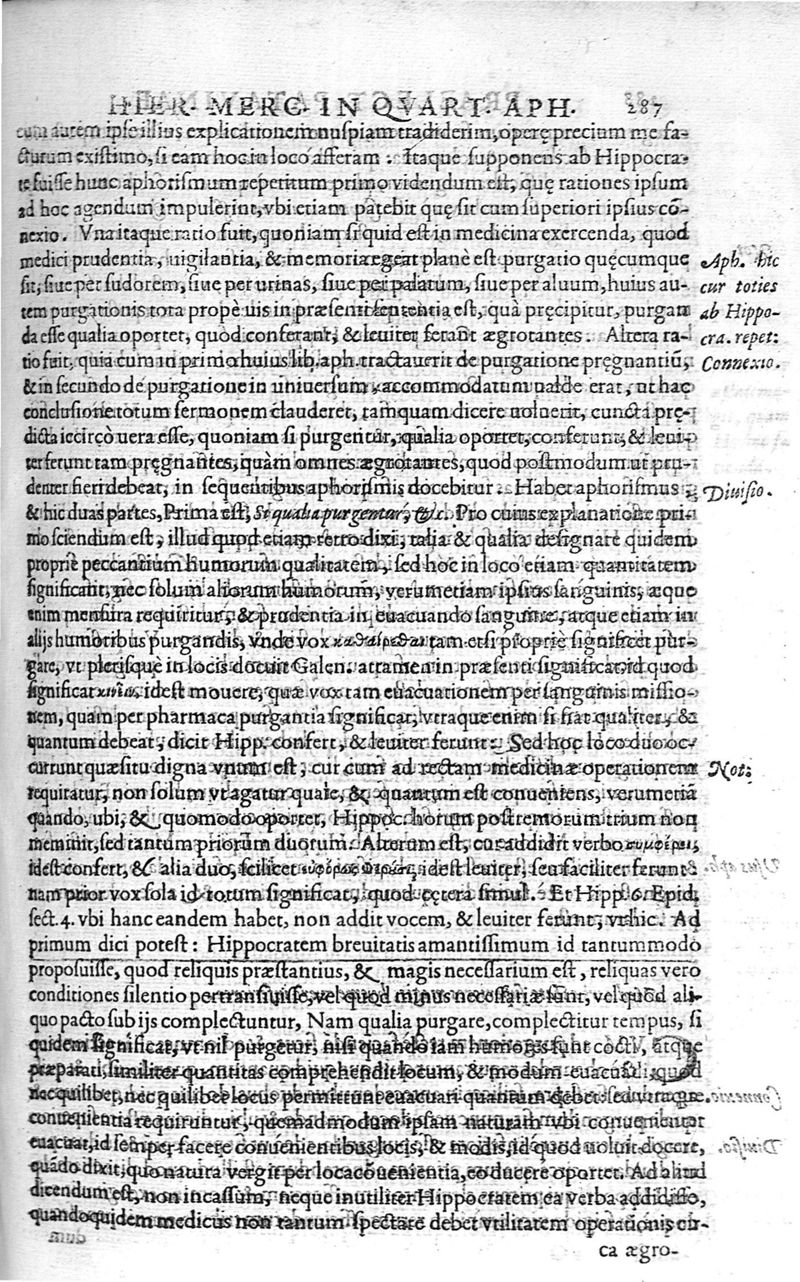 HIER. MERC. IN QVART. APH. 287
cum autem ipse illius explicationem nuspiam tradiderim, operę precium me fa-
cturum existimo, si eam hoc in loco afferam: Itaque supponens ab Hippocra-
te fuisse hunc aphorismum repetitum primo videndum est, quę rationes ipsum
ad hoc agendum impulerint, vbi etiam patebit quę sit cum superiori ipsius cō-
nexio. Vna itaque ratio fuit, quoniam si quid est in medicina exercenda, quod
medici prudentia, uigilantia, & memoria egeat planè est purgatio quęcumque
sit, siue per sudorem, siue per urinas, siue per palatum, siue per aluum, huius au-
tem purgationis tota propè uis in præsenti sententia est, quà pręcipitur, purgan
da esse qualia oportet, quòd conferant, & leuiter ferant ægrotantes. Altera ra-
tio fuit, quia cum in primo huius lib. aph. tractauerit de purgatione pręgnantiū,
& in secundo de purgatione in uniuersum, accommodatum ualde erat, ut hac
conclusione totum sermonem clauderet, tamquam dicere uoluerit, cuncta prę-
dicta iccircò uera esse, quoniam si purgentur, qualia oportet, conferunt, & leui-
ter ferunt tam pręgnantes, quàm omnes ægrotantes, quod postmodum ut pru-
denter fieri debeat, in sequentibus aphorismis docebitur. Habet aphorismus
& hic duas partes, Prima est, Si qualia purgentur, &c. Pro cuius explanatione pri-
mo sciendum est, illud quod etiam retro dixi, talia & qualia designare quidem
propriè peccantium humorum qualitatem, sed hoc in loco etiam quantitatem
significant, nec solum aliorum humorum, verumetiam ipsius sanguinis, æque
enim mensura requiritur, & prudentia in euacuando sanguine, atque etiam in
alijs humoribus purgandis, vnde vox tametsi propriè significet pur-
gare, vt plerisque in locis docuit Galen. attamen in præsenti significat id quod
significat idest mouere, quæ vox tam euacuationem per sanguinis missio-
nem, quam per pharmaca purgantia significat, vtraque enim si fiat qualiter, &
quantum debeat, dicit Hipp. confert, & leuiter ferunt: Sed hoc loco duo oc-
currunt quæsitu digna vnum est, cur cum ad rectam medicinæ operationem
requiratur, non solum vt agatur quale, & quantum est conueniens, verumetiā
quando, ubi, & quomodo oportet, Hippoc. horum postremorum trium non
meminit, sed tantum priorum duorum. Alterum est, cur addidit verbo συμφέρει,
idest confert, & alia duo, scilicet idest leuiter, seu faciliter ferunt:
nam prior vox sola id totum significat, quod cętera simul. Et Hipp. 6. Epid.
sect. 4. vbi hanc eandem habet, non addit vocem, & leuiter ferunt, vt hic. Ad
primum dici potest: Hippocratem breuitatis amantissimum id tantummodo
proposuisse, quod reliquis præstantius, & magis necessarium est, reliquas vero
conditiones silentio pertransiuisse, vel quòd minus necessariæ sunt, vel quòd ali-
quo pacto sub ijs complectuntur, Nam qualia purgare, complectitur tempus, si
quidem significat, vt nil purgetur, nisi quando iam humores sunt cocti, atque
præparati, similiter quantitas comprehendit locum, & modum euacuādi, quod
nec quilibet, nec quilibet locus permittunt euacuari quantum debet sed vtraque
conuenientia requiruntur, quemadmodum ipsam naturam vbi conuenienter
euacuat, id semper facere conuenientibus locis, & modis, id quod uoluit docere,
quādo dixit, quo natura vergit per loca cōuenientia, eo ducere oportet. Ad aliud
dicendum est, non incassum, neque inutiliter Hippocratem ea verba addidisse,
quandoquidem medicus non tantum spectare debet vtilitatem operationis cir-
ca ægro-
Aph. hic
cur toties
ab Hippo-
cra. repet:
Connexio.
Diuisio.
Not: